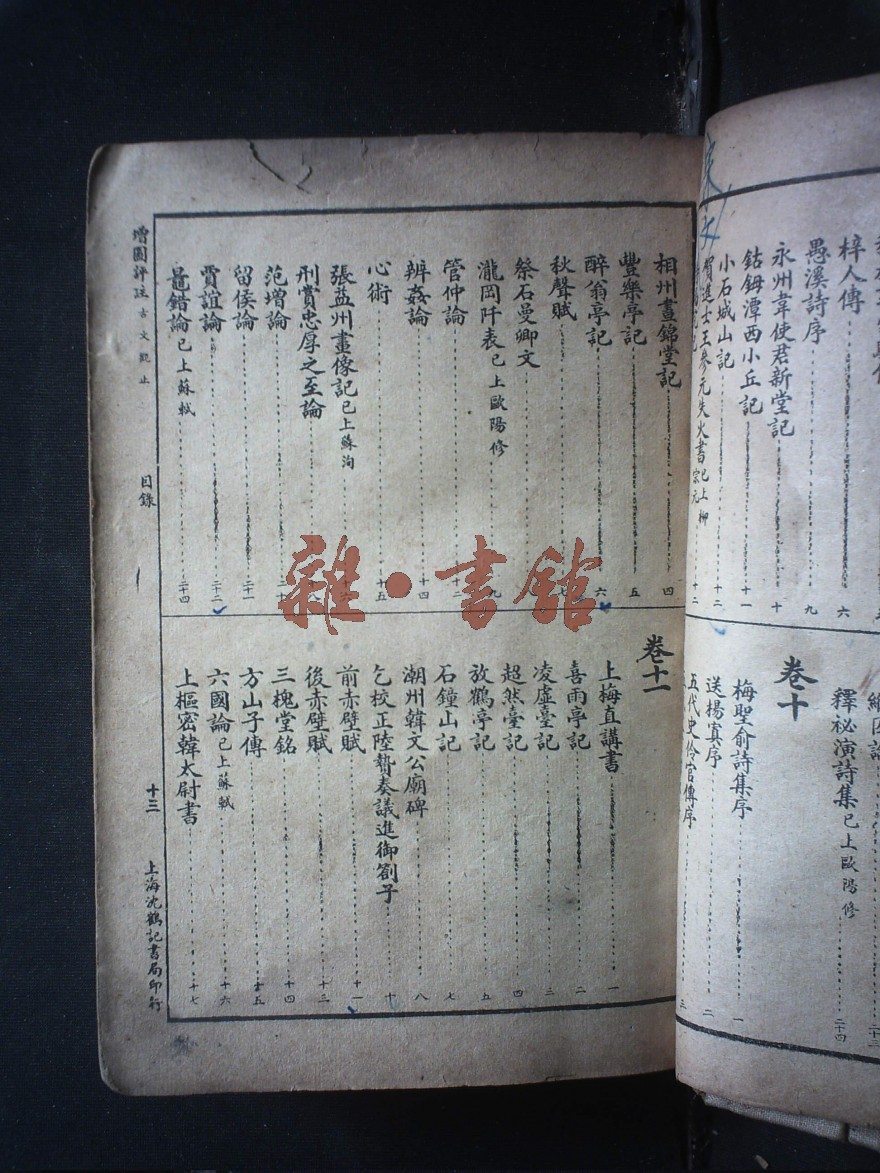 梓人傳 六
愚溪詩序 九
永州韋使君新堂記 十
鈷鉧潭西小丘記 十一
小石城山記 十二
賀進士王參元失火書 已上柳宗元 十二
釋祕演詩集 已上歐陽修 二十四
卷十
梅聖俞詩集序 一
送楊寘序 二
五代史伶官傳序 三
相州晝錦堂記 四
豐樂亭記 五
醉翁亭記 六
秋聲賦 七
祭石曼卿文
瀧岡阡表 已上歐陽修 九
管仲論 十二
辨姦論 十四
心術 十五
張益州畫像記 已上蘇洵
刑賞忠厚之至論 十八
范增論 二十
留侯論 二十一
賈誼論 二十二
鼂錯論 已上蘇軾 二十四
卷十一
上梅直講書 一
喜雨亭記 二
凌虛臺記 三
超然臺記 四
放鶴亭記 五
石鐘山記 七
潮州韓文公廟碑 八
乞校正陸贄奏議進御劄子 十
前赤壁賦 十一
後赤壁賦 十三
三槐堂銘 十四
方山子傳 十五
六國論 已上蘇軾 十六
上樞密韓太尉書 十七
增圖評註古文觀止
目錄
十三
上海沈鶴記書局印行
雜·書館